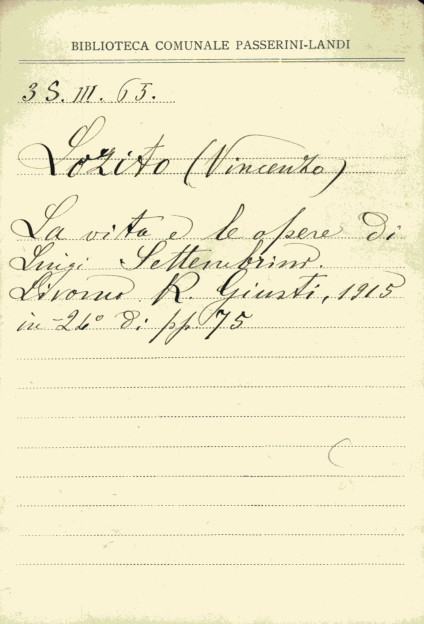 BIBLIOTECA COMUNALE PASSERINI-LANDI
3S. III. 65.
Lozito (Vincenzo)
La vita e le opere di
Luigi Settembrini.
Livorno R. Giusti, 1915
in-24° di pp. 75